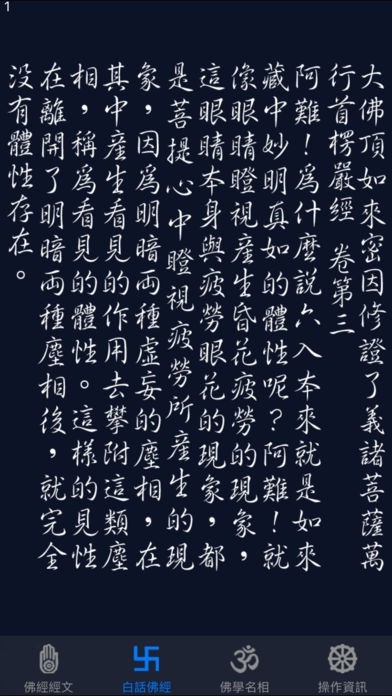 1
大佛頂如來密因修證了義諸菩薩萬
行首楞嚴經 卷第三
阿難！爲什麼說六入本來就是如來
藏中妙明真如的體性呢？阿難！就
像眼睛瞪視産生昏花疲勞的現象，
這眼睛本身與疲勞眼花的現象，都
是菩提心中瞪視疲勞所産生的現
象，因爲明暗兩種虛妄的塵相，在
其中産生看見的作用去攀附這類塵
相，稱爲看見的體性。這樣的見性
在離開了明暗兩種塵相後，就完全
沒有體性存在。
佛經經文
白話佛經
佛學名相
操作資訊